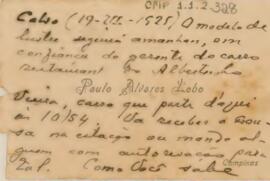 CMP 1.1.2.328
Celso (19-VII-1525) O modelo de
lustre seguirá amanhan, em
confiança do gerente do carro
restaurant Sr. Albertinho
Paulo Alvares Lobo
Vieira, carro que parte d'aqui
às 10/54. Va receber a
na estação ou mande al
guem com autorização para
tal. Como Você sabe
Campinas